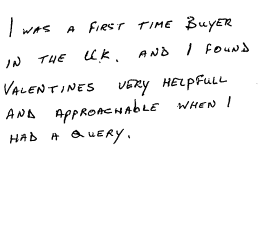 I WAS A FIRST TIME BUYER
IN THE U.K. AND I FOUND
VALENTINES VERY HELPFULL
AND APPROACHABLE WHEN I
HAD A QUERY.